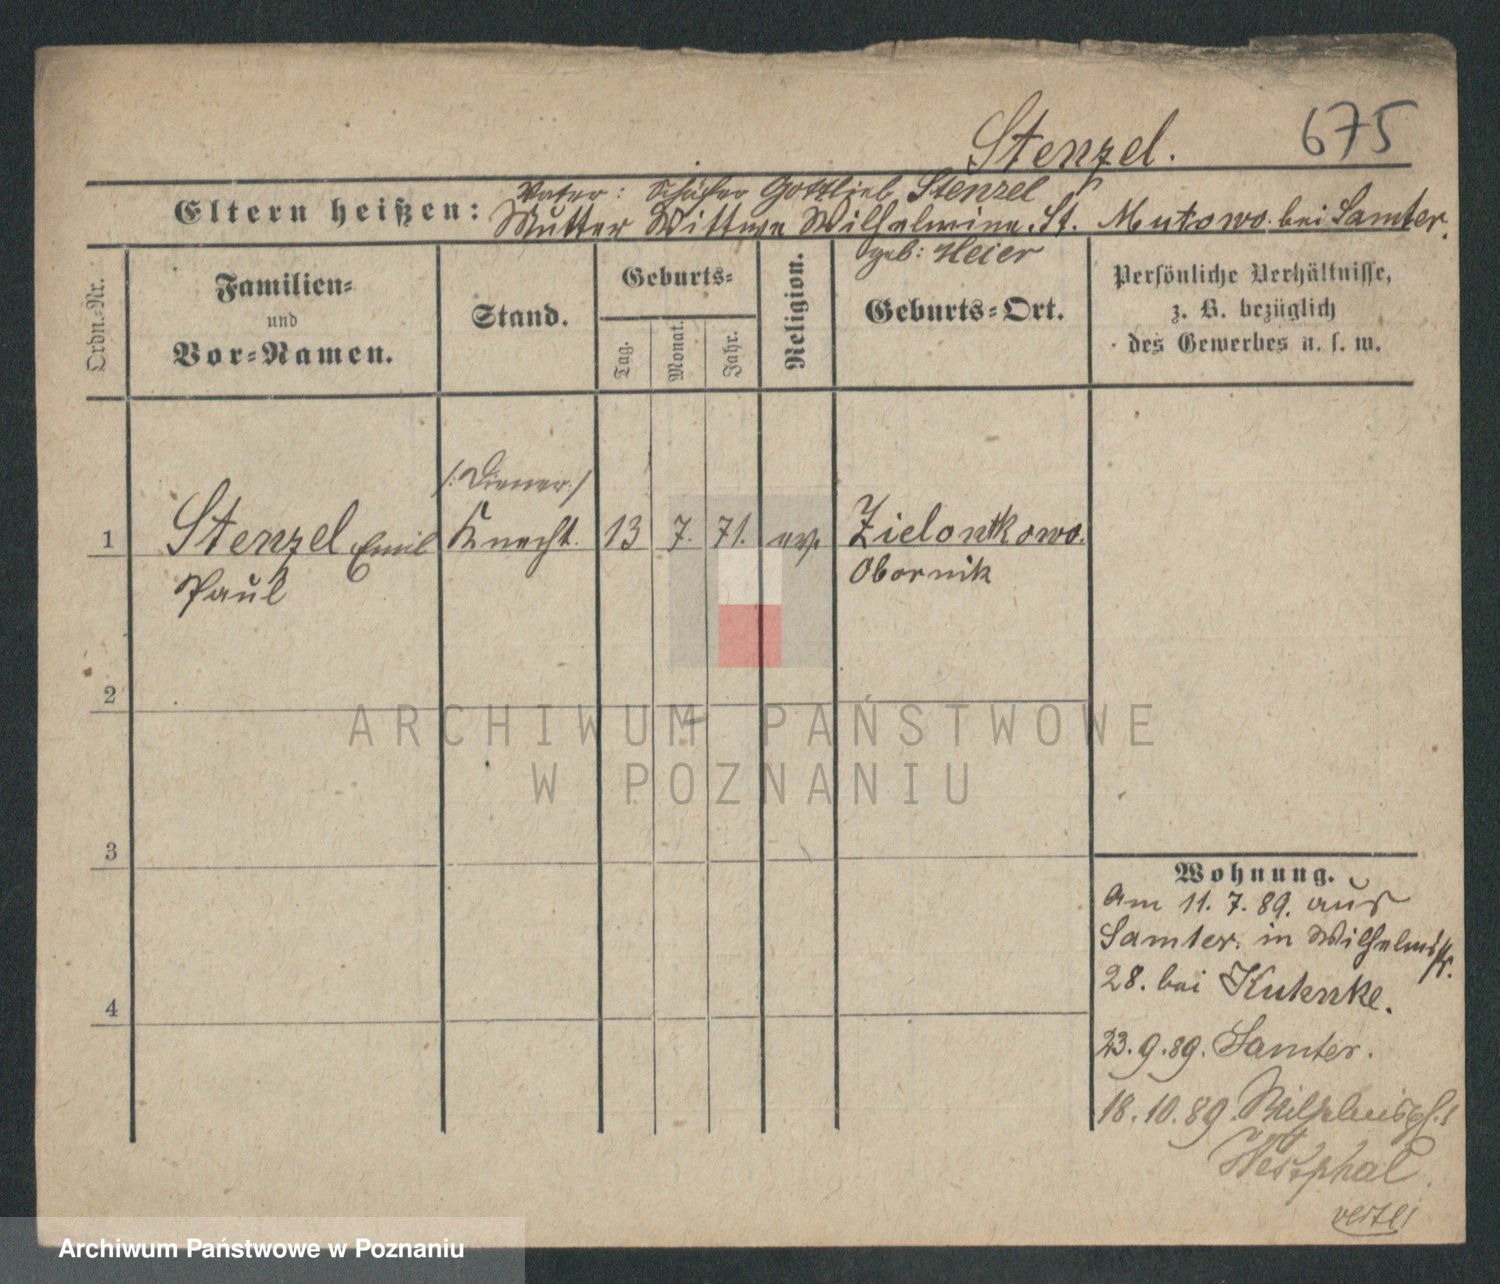 675
Stenzel.
Vater: Schäfer Gottlieb Stenzel
Eltern heißen: Mutter Wittwe Wilhelmine St. Mutowo bei Samter.
geb: Heier
Ordn.-Nr.
Familien-
und
Vor-Namen.
Stand.
Geburts-
Tag.
Monat.
Jahr.
Religion.
Geburts-Ort.
Persönliche Verhältnisse,
z. B. bezüglich
des Gewerbes u. s. w.
/: Diener :/
1 Stenzel Emil Knecht. 13 7. 71. ev. Zielontkowo.
Paul Obornik
2
3
4
Wohnung.
Am 11. 7. 89. aus
Samter. in Wilhelmstr.
28. bei Kuhnke.
23.9.89. Samter.
18.10.89. Wilhelmspl. 1
Westphal.
ARCHIWUM PAŃSTWOWE
W POZNANIU
Archiwum Państwowe w Poznaniu